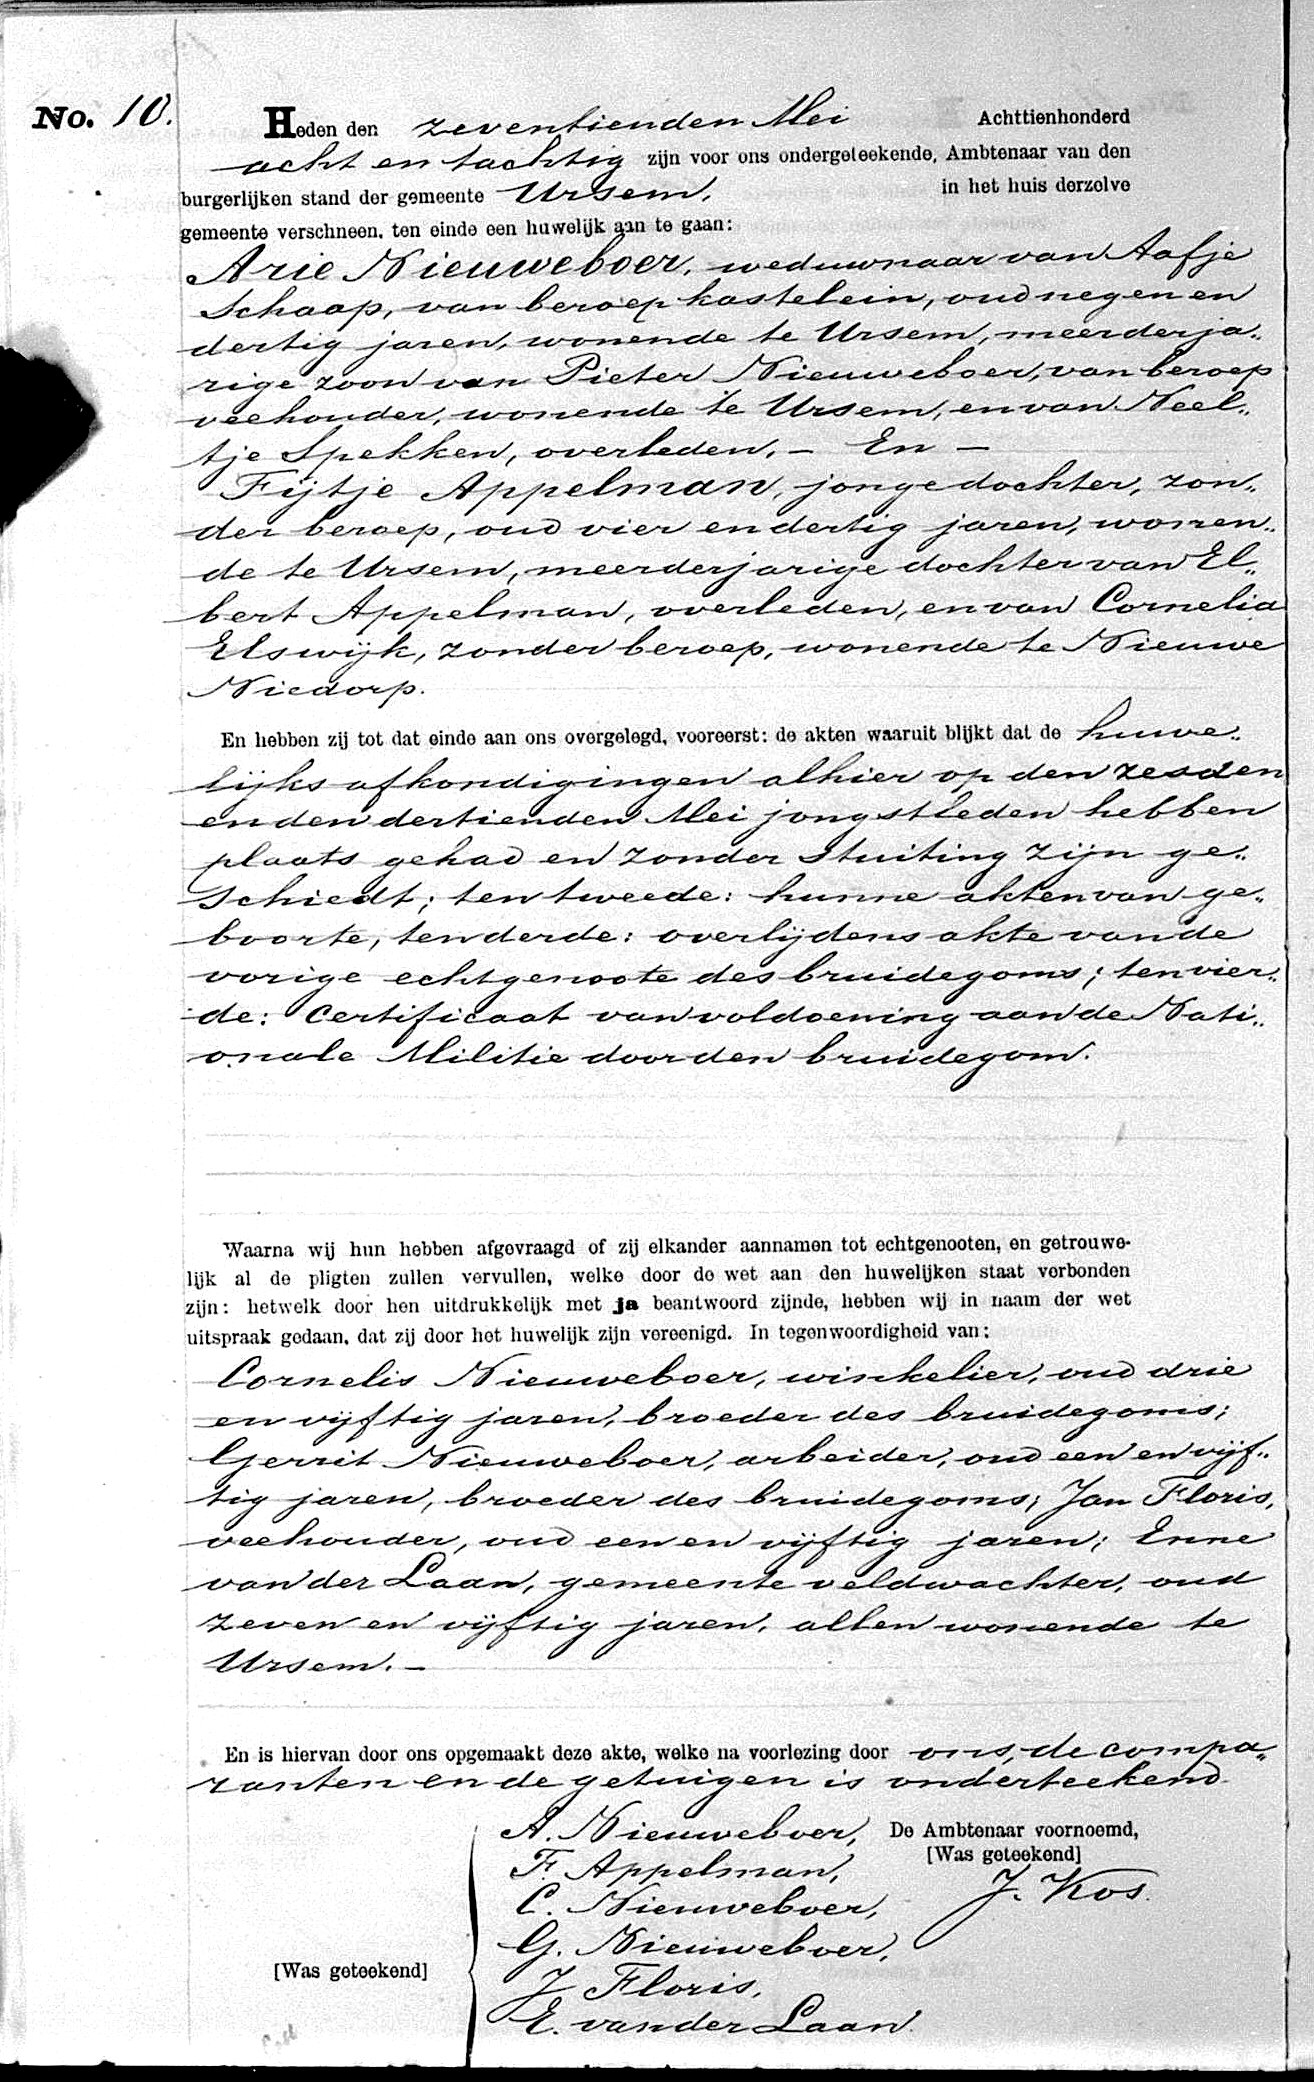 No. 10.
Heden den zeventienden Mei Achttienhonderd
acht en tachtig zijn voor ons ondergeteekende, Ambtenaar van den
burgerlijken stand der gemeente Ursem, in het huis derzelve
gemeente verschneen, ten einde een huwelijk aan te gaan:
Arie Nieuweboer, weduwnaar van Aafje
Schaap, van beroep kastelein, oud negen en
dertig jaren, wonende te Ursem, meerderja„
rige zoon van Pieter Nieuweboer, van beroep
veehouder, wonende te Ursem, en van Neel„
tje Spekken, overleden. – En –
Fijtje Appelman, jongedochter, zon„
der beroep, oud vier en dertig jaren, wonen„
de te Ursem, meerderjarige dochter van El„
bert Appelman, overleden, en van Cornelia
Elswijk, zonder beroep, wonende te Nieuwe
Niedorp.
En hebben zij tot dat einde aan ons overgelegd, vooreerst: de akten waaruit blijkt dat de huwe„
lijks afkondigingen alhier op den zesden
en den dertienden Mei jongstleden hebben
plaats gehad en zonder stuiting zijn ge„
schiedt; ten tweede: hunne akten van ge„
boorte, ten derde: overlijdens akte van de
vorige echtgenoote des bruidegoms; ten vier„
de: Certificaat van voldoening aan de Nati„
onale Militie door den bruidegom.
Waarna wij hun hebben afgevraagd of zij elkander aannamen tot echtgenooten, en getrouwe-
lijk al de pligten zullen vervullen, welke door de wet aan den huwelijken staat verbonden
zijn: hetwelk door hen uitdrukkelijk met ja beantwoord zijnde, hebben wij in naam der wet
uitspraak gedaan, dat zij door het huwelijk zijn vereenigd. In tegenwoordigheid van:
Cornelis Nieuweboer, winkelier, oud drie
en vijftig jaren, broeder des bruidegoms;
Gerrit Nieuweboer, arbeider, oud een en vijf„
tig jaren, broeder des bruidegoms; Jan Floris,
veehouder, oud een en vijftig jaren; Enne
van der Laan, gemeente veldwachter, oud
zeven en vijftig jaren, allen wonende te
Ursem. –
En is hiervan door ons opgemaakt deze akte, welke na voorlezing door ons, de compa„
ranten en de getuigen is onderteekend
A. Nieuweboer, De Ambtenaar voornoemd,
F. Appelman, [Was geteekend]
C. Nieuweboer, J. Kos.
G. Nieuweboer,
[Was geteekend] J Floris,
E. van der Laan.